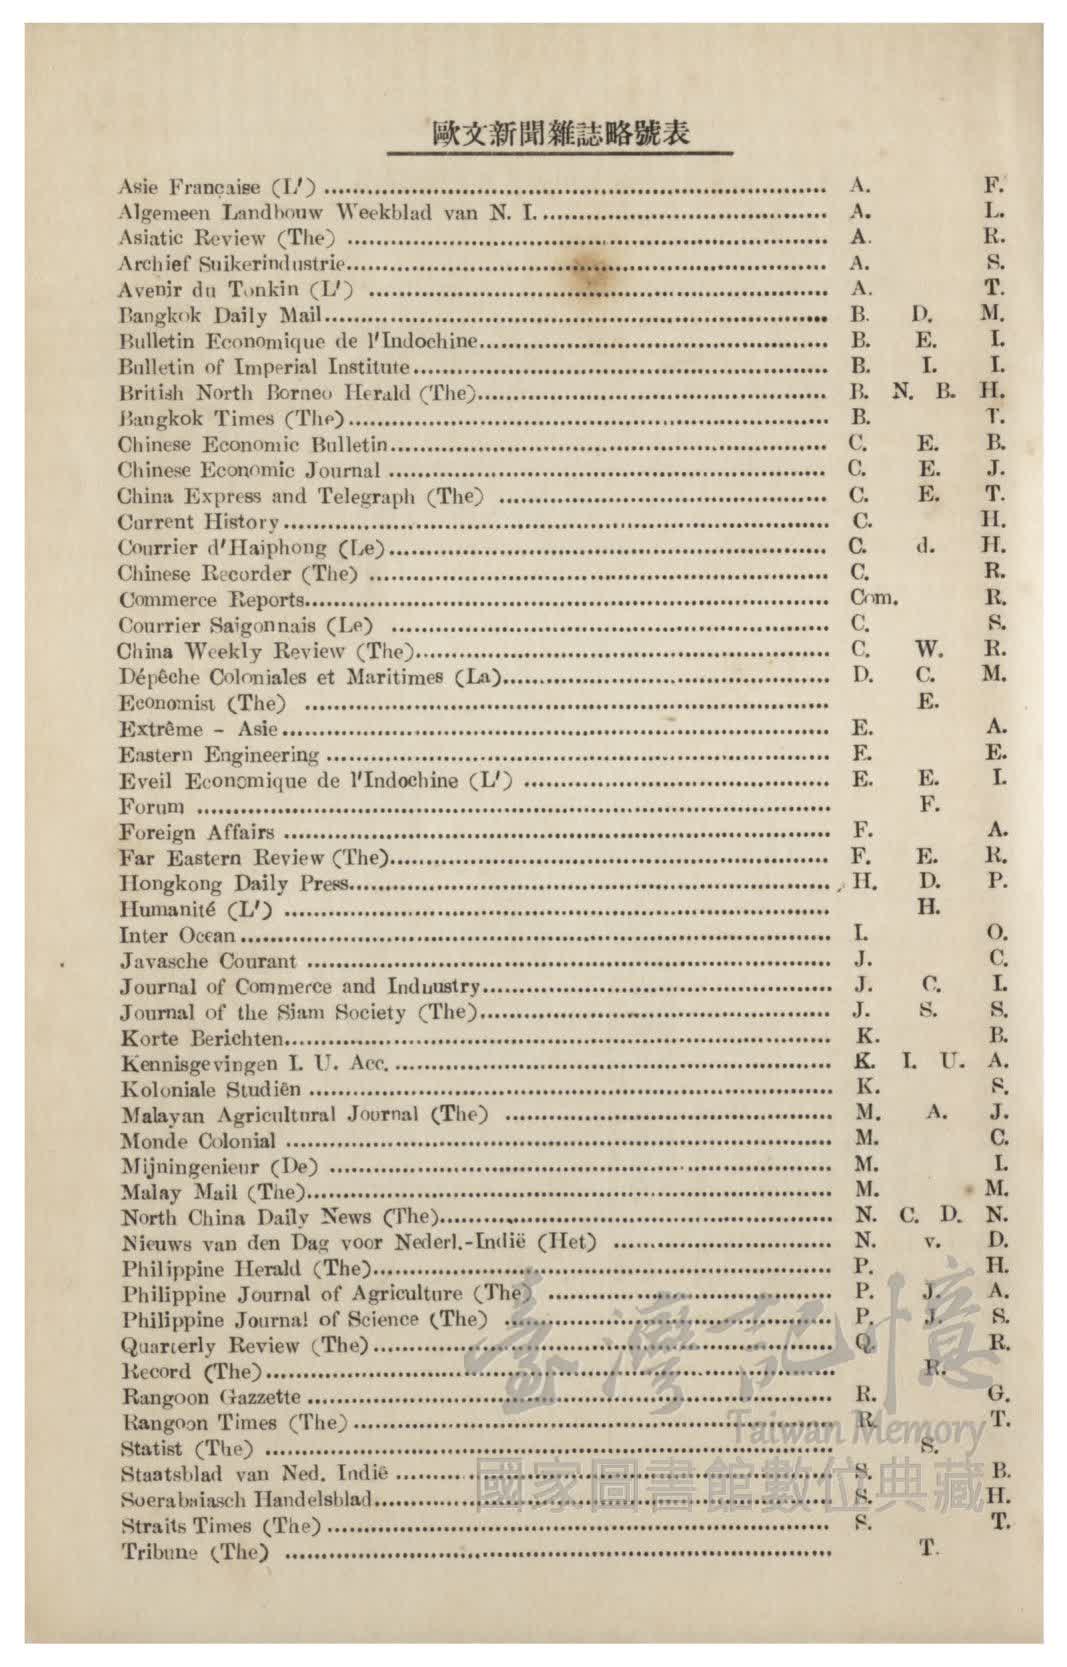 歐文新聞雜誌略號表
Asie Française (L') A. F.
Algemeen Landbouw Weekblad van N. I. A. L.
Asiatic Review (The) A. R.
Archief Suikerindustrie A. S.
Avenir du Tonkin (L') A. T.
Bangkok Daily Mail B. D. M.
Bulletin Economique de l'Indochine B. E. I.
Bulletin of Imperial Institute B. I. I.
British North Borneo Herald (The) B. N. B. H.
Bangkok Times (The) B. T.
Chinese Economic Bulletin C. E. B.
Chinese Economic Journal C. E. J.
China Express and Telegraph (The) C. E. T.
Current History C. H.
Courrier d'Haiphong (Le) C. d. H.
Chinese Recorder (The) C. R.
Commerce Reports Com. R.
Courrier Saigonnais (Le) C. S.
China Weekly Review (The) C. W. R.
Dépêche Coloniales et Maritimes (La) D. C. M.
Economist (The) E.
Extrême - Asie E. A.
Eastern Engineering E. E.
Eveil Economique de l'Indochine (L') E. E. I.
Forum F.
Foreign Affairs F. A.
Far Eastern Review (The) F. E. R.
Hongkong Daily Press H. D. P.
Humanité (L') H.
Inter Ocean I. O.
Javasche Courant J. C.
Journal of Commerce and Induustry J. C. I.
Journal of the Siam Society (The) J. S. S.
Korte Berichten K. B.
Kennisgevingen I. U. Acc. K. I. U. A.
Koloniale Studiën K. S.
Malayan Agricultural Journal (The) M. A. J.
Monde Colonial M. C.
Mijningenieur (De) M. I.
Malay Mail (The) M. M.
North China Daily News (The) N. C. D. N.
Nieuws van den Dag voor Nederl.-Indië (Het) N. v. D.
Philippine Herald (The) P. H.
Philippine Journal of Agriculture (The) P. J. A.
Philippine Journal of Science (The) P. J. S.
Quarterly Review (The) Q. R.
Record (The) R.
Rangoon Gazzette R. G.
Rangoon Times (The) R. T.
Statist (The) S.
Staatsblad van Ned. Indië S. B.
Soerabaiasch Handelsblad S. H.
Straits Times (The) S. T.
Tribune (The) T.
臺灣記憶
Taiwan Memory
國家圖書館數位典藏